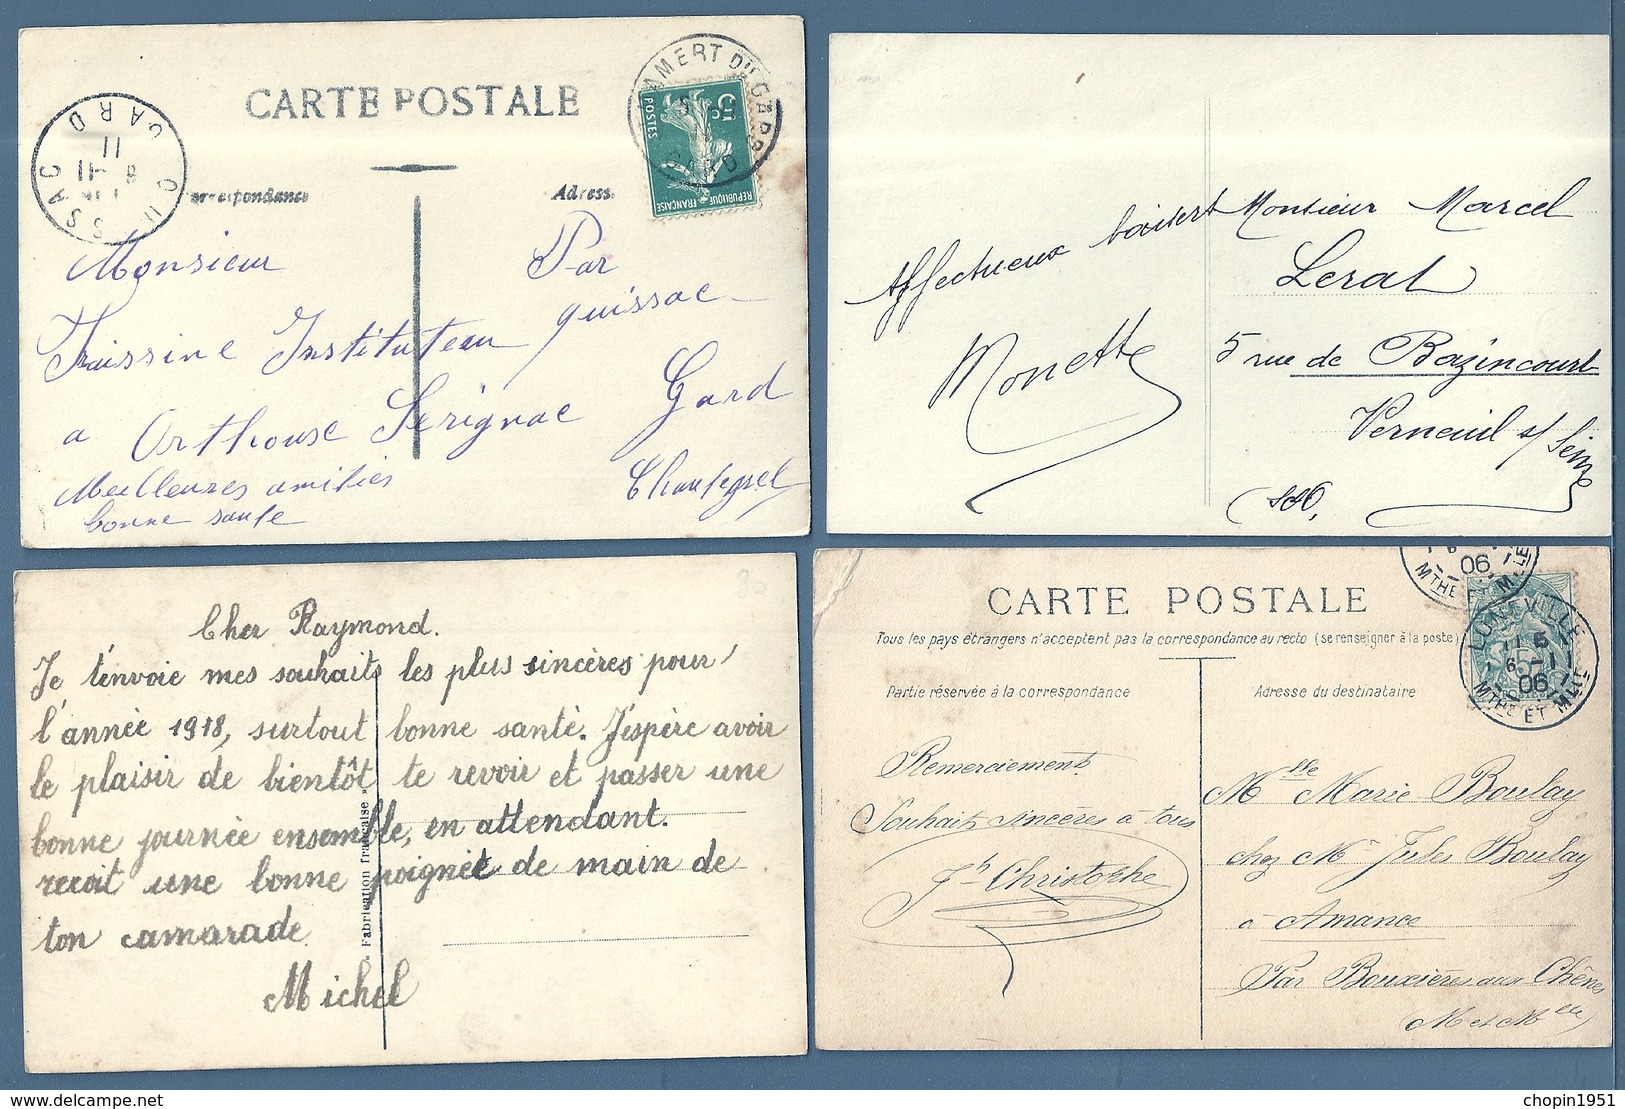 CARTE POSTALE
Correspondance
Adresse
QUISSAC GARD
11
GARD
5c
POSTES
REPUBLIQUE FRANÇAISE
Monsieur
Fraissine Instituteur
a Orthouse Serignac
Par
quissac
Gard
Meilleures amitiés
bonne sante
Chantegrel
Affectueux baisers
Monette
Monsieur Marcel
Lerat
5 rue de Bazincourt
Verneuil s/ Seine
(S&O,
Cher Raymond.
Je t'envoie mes souhaits les plus sincères pour
l'année 1918, surtout bonne santé. J'éspère avoir
le plaisir de bientôt te revoir et passer une
bonne journée ensemble, en attendant.
recoit une bonne poignée de main de
ton camarade.
Michel
« Fabrication française »
CARTE POSTALE
Tous les pays étrangers n'acceptent pas la correspondance au recto (se renseigner à la poste)
Partie réservée à la correspondance
Adresse du destinataire
06
MTHE ET MLLE
LUNEVILLE
6 -1
06
MTHE ET MLLE
Remerciement.
Souhaits sincères à tous
Jh Christophe
Mlle Marie Boulay
chez Mr Jules Boulay
à Amance
Par Bouxières aux Chênes
(M et Mlle)
chopin1951